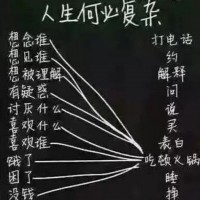 人生何必复杂
想念谁 打电话
想见谁 约
想被理解 解释
有疑惑 问
讨厌什么 说
喜欢什么 买
喜欢谁 表白
饿了 吃顿火锅
困了 睡
没钱 挣